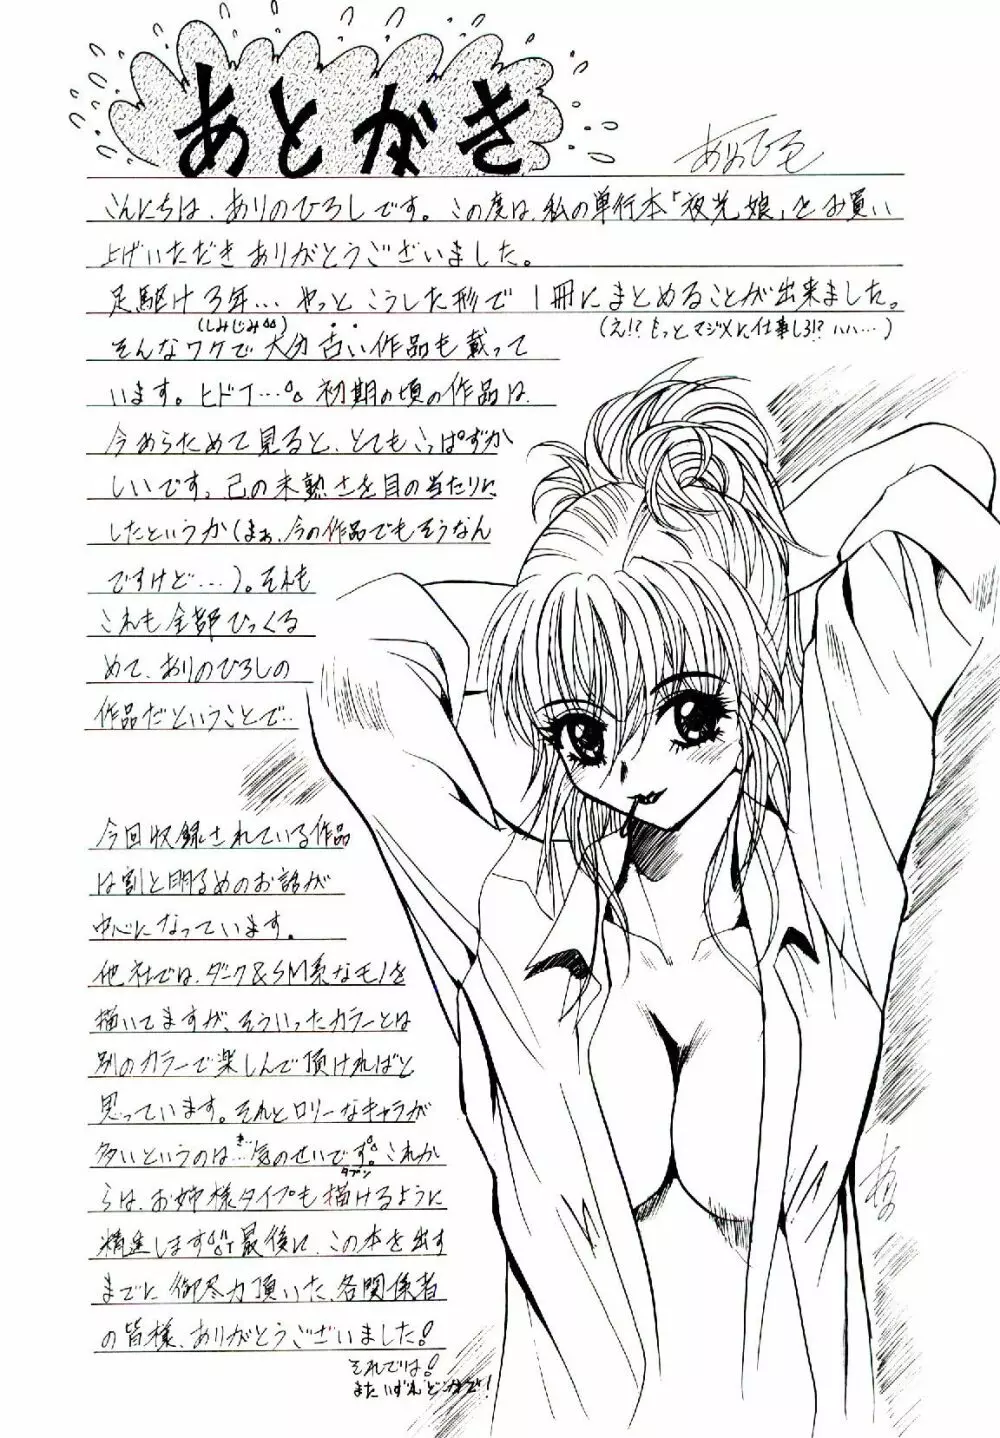 あとがき
ありのひろし
こんにちは、ありのひろしです。この度は、私の単行本「夜光娘」をお買い
上げいただきありがとうございました。
足駆け3年…やっとこうした形で1冊にまとめることが出来ました。
(しみじみ)
(え!?もっとマジメに仕事しろ!?ハハ…)
そんなワケで大分古い作品も載って
います。ヒドイ…。初期の頃の作品は、
今あらためて見ると、とてもこっぱずか
しいです。己の未熟さを目の当たりに
したというか(まぁ、今の作品でもそうなん
ですけど…)。それも
これも全部ひっくる
めて、ありのひろしの
作品だということで…
今回収録されている作品
は割と明るめのお話が
中心になっています。
他社では、ダーク&SM系なモノを
描いてますが、そういったカラーとは
別のカラーで楽しんで頂ければと
思っています。それとロリーなキャラが
多いというのは…気のせいです。これか
き
タブン
らは、お姉様タイプも描けるように
精進します 最後に、この本を出す
までに御尽力頂いた、各関係者
の皆様、ありがとうございました!
それでは!
またいずれどこかで!